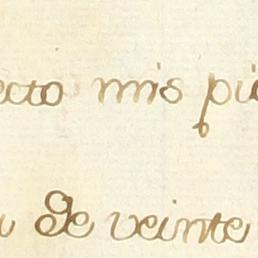 ecto mis pi
a de veinte